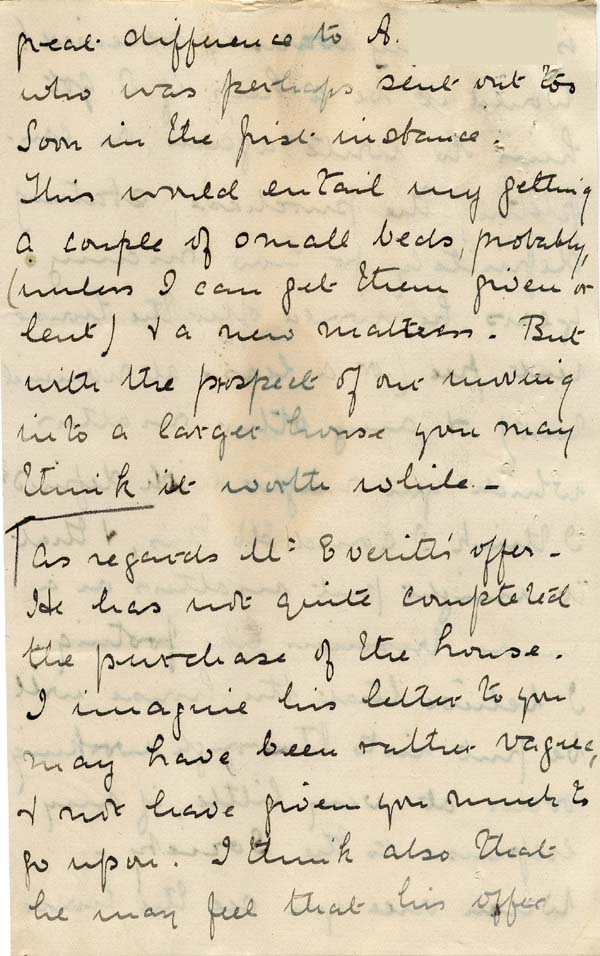 great difference to A.
who was perhaps sent out too
soon in the first instance.
This would entail my getting
a couple of small beds, probably,
(unless I can get them given or
lent) & a new matress. But
with the prospect of our moving
into a larger house you may
think it worth while. –
As regards Mr. Everitt's offer –
He has not quite completed
the purchase of the house.
I imagine his letter to you
may have been rather vague,
& not have given you much to
go upon. I think also that
he may feel that his offer